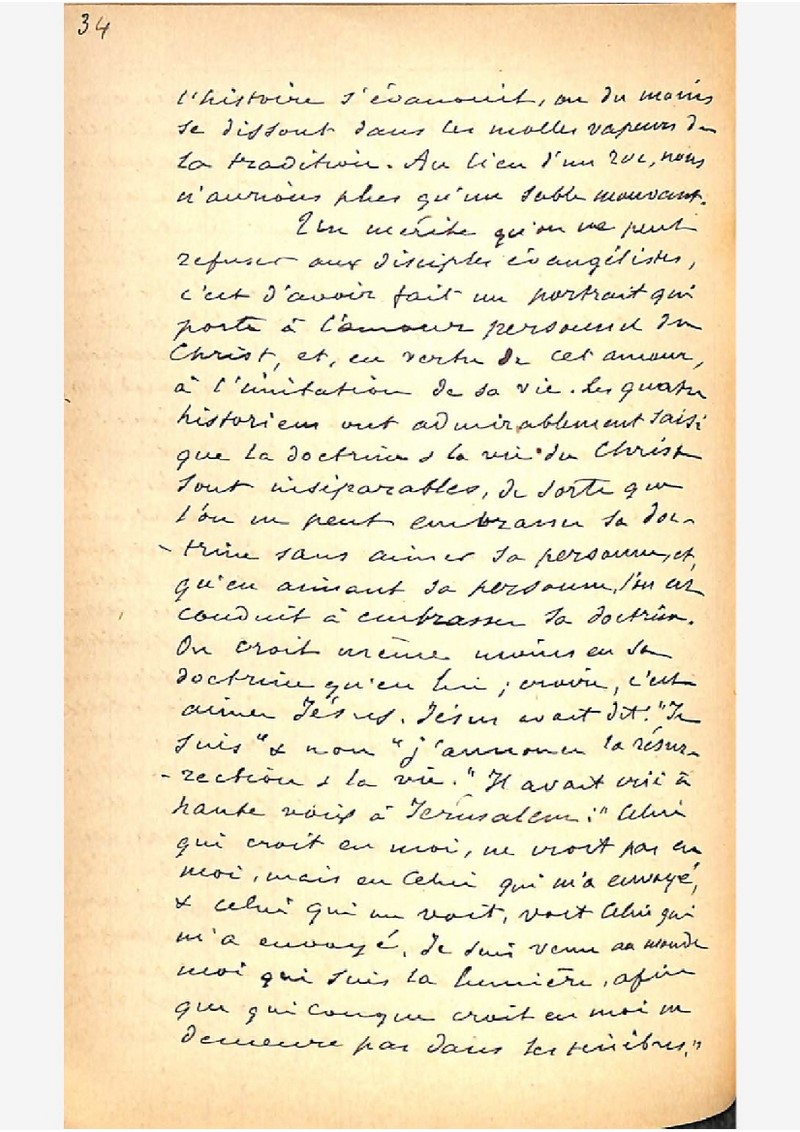 34
l'histoire s'évanouit, ou du moins
se dissout dans les molles vapeurs de
la tradition. Au lieu d'un roc, nous
n'aurions plus qu'un sable mouvant.
Un mérite qu'on ne peut
refuser aux disciples évangélistes,
c'est d'avoir fait un portrait qui
porte à l'amour personnel du
Christ, et, en vertu de cet amour,
à l'imitation de sa vie. Les quatre
historiens ont admirablement saisi
que la doctrine & la vie du Christ
sont inséparables, de sorte que
l'on ne peut embrasser sa doc-
-trine sans aimer sa personne, et,
qu'en aimant sa personne, l'on est
conduit à embrasser sa doctrine.
On croit même moins en sa
doctrine qu'en lui ; croire, c'est
aimer Jésus. Jésus avait dit: "Je
suis" & non "j'annonce la résur-
-rection & la vie." Il avait crié à
haute voix à Jérusalem: "Celui
qui croit en moi, ne croit pas en
moi, mais en Celui qui m'a envoyé,
& celui qui me voit, voit Celui qui
m'a envoyé. Je suis venu au monde
moi qui suis la lumière, afin
que quiconque croit en moi ne
demeure pas dans les ténèbres."